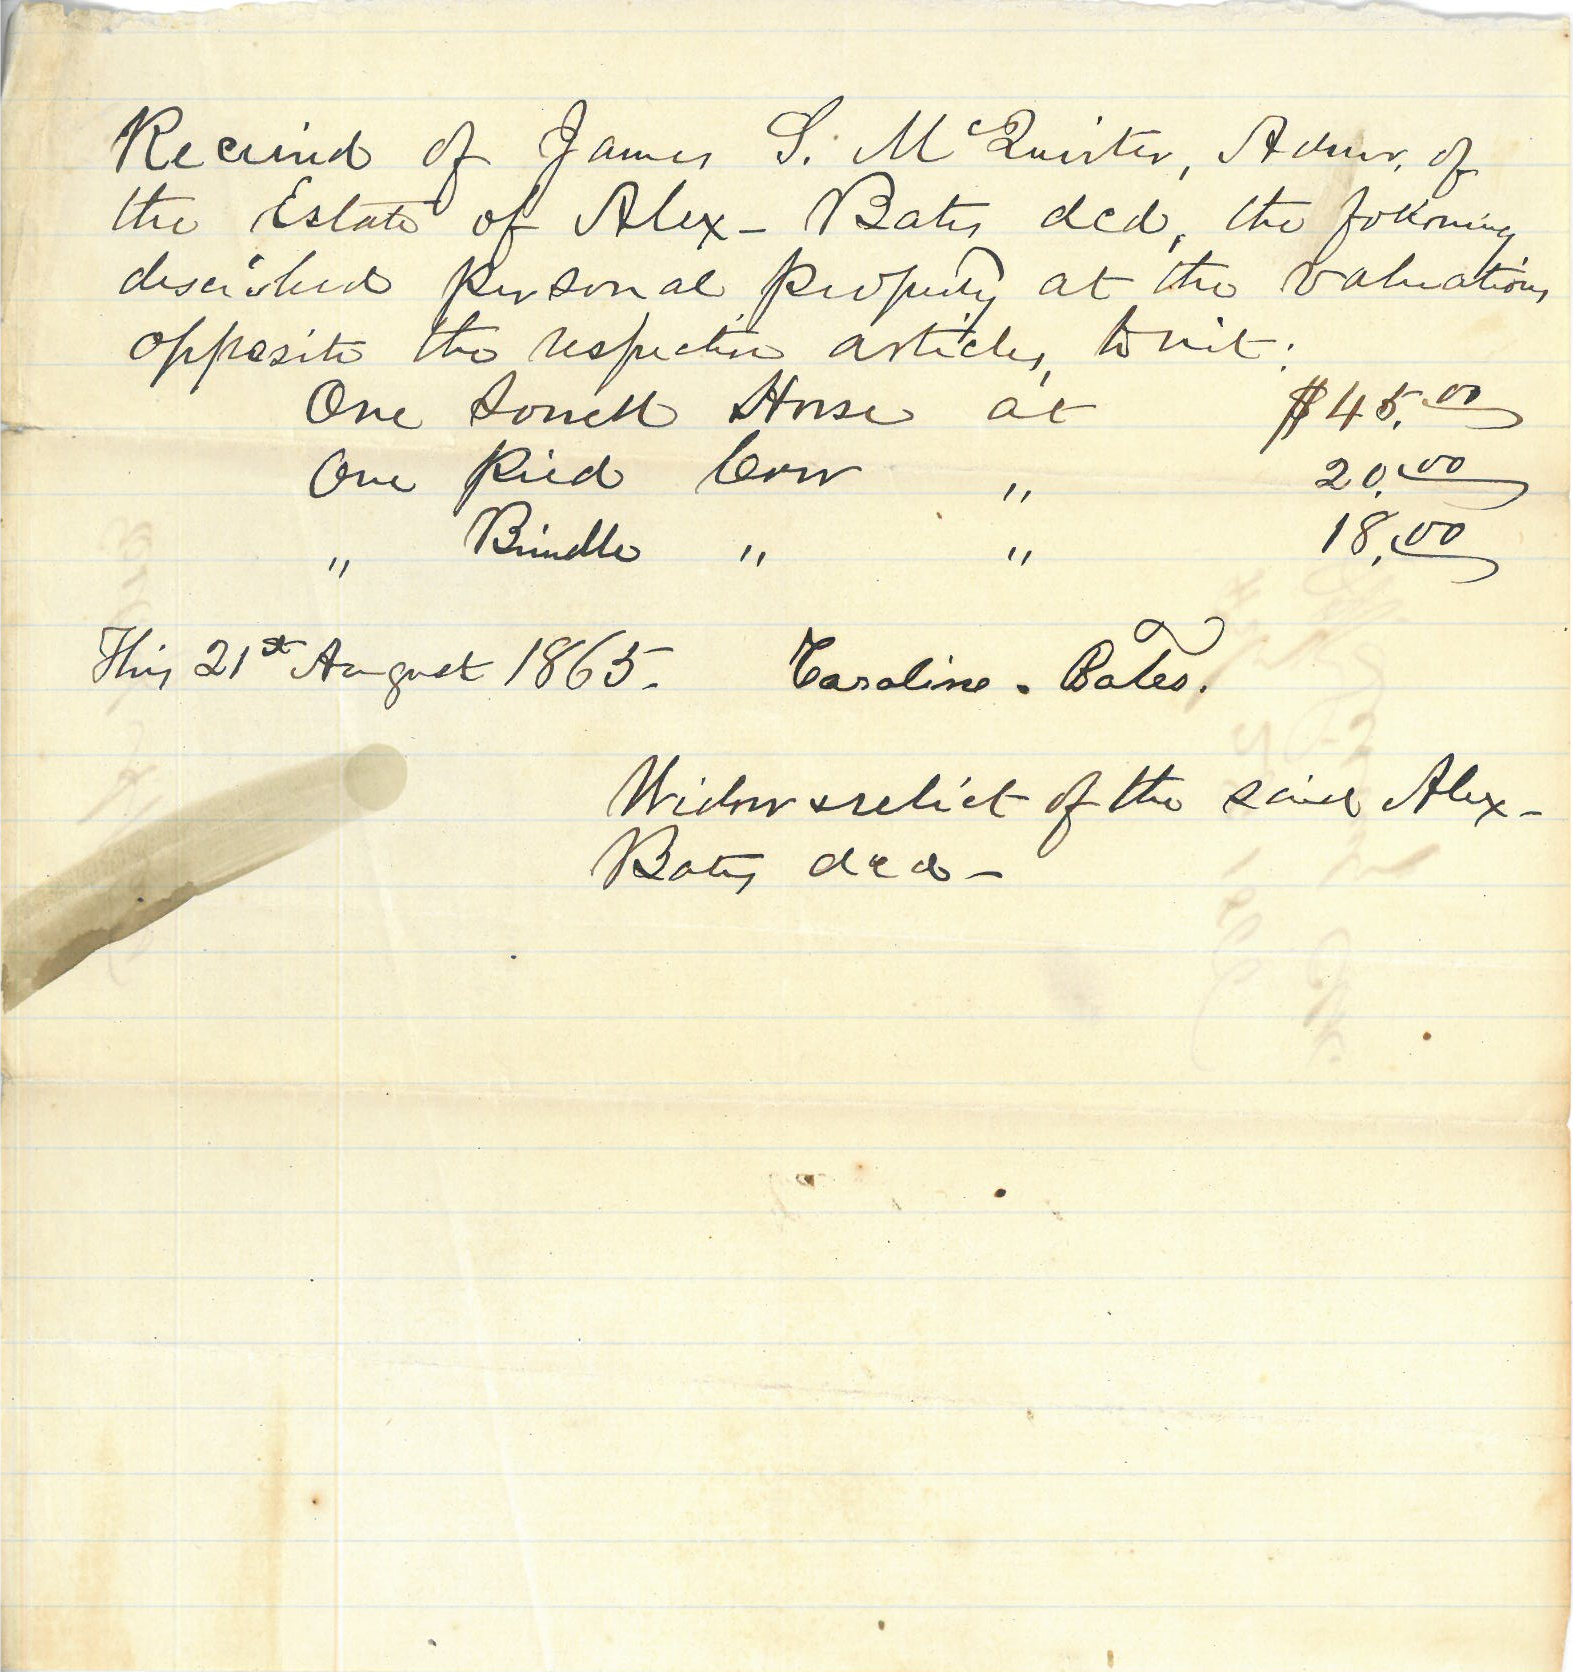 Received of James S. McQuister, Admr. of
the Estate of Alex- Bates dcd, the following
described personal property at the valuations
opposite the respective articles, to wit:
One Sorrell Horse at $45.00
One Pied Cow " 20.00
" Brindle " " 18.00
This 21st August 1865. Caroline. Bates.
Widow & relict of the said Alex-
Bates dcd-